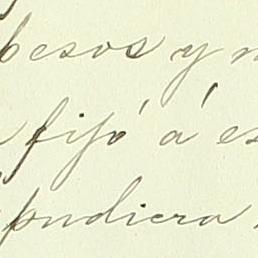 besos y
fijó á
pudiera